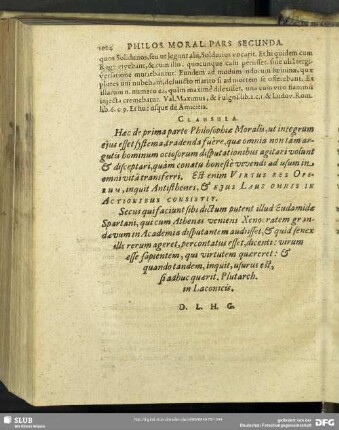 1024 PHILOS. MORAL. PARS SECUNDA.
quos Soldunos, seu ut legunt alii, Soldurios vocarit. Et hi quidem cum
Rege vivebant, & cum illo: quocunque casu periisset, sine ulla tergi-
versatione moriebantur. Eundem ad modum Indorum feminæ, quæ
plures uni nubebant, defuncto marito si ad mortem se offerebant. Ex
illarum n. numero ea, quam maximè dilexisset, una cum viro flammis
injecta cremebatur. Val. Maximus, & Fulgos. lib. 2. c. 1. & Ludov. Rom.
lib. 6. c. 9. Et huc usque de Amicitia.
CLAUSULA.
Hæc de prima parte Philosophiæ Moralis, ut integrum
ejus esset systema, tradenda fuere, quæ omnia non tam ar-
gutis hominum otiosorum disputationibus agitari volunt
& disceptari, quàm conatu honestè vivendi ad usum in
omni vitâ transferri. Est enim VIRTUS RES OPE-
RUM, inquit Antisthenes, & EJUS LAUS OMNIS IN
ACTIONIBUS CONSISTIT.
Secus qui faciunt sibi dictum putent illud Eudamidæ
Spartani, qui cum Athenas veniens Xenocratem gran-
dævum in Academia disputantem audisset, & quid senex
ille rerum ageret, percontatus esset, dicenti: virum
esse sapientem, qui virtutem quæreret: &
quando tandem, inquit, usurus est,
si adhuc quærit. Plutarch.
in Laconicis.
D. L. H. G.
SLUB
Wir führen Wissen.
gefördert von der
Deutschen Forschungsgemeinschaft
DFG